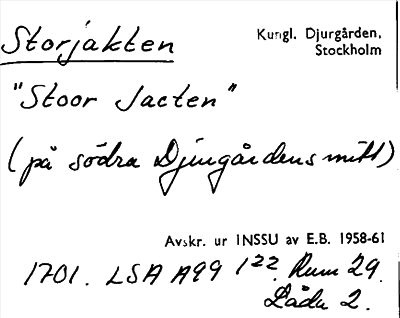 Storjakten
Kungl. Djurgården,
Stockholm
"Stoor Jacten"
(på södra Djurgårdens mitt)
Avskr. ur INSSU av E.B. 1958-61
1701. LSA A99 122. Rum 29.
Låda 2.